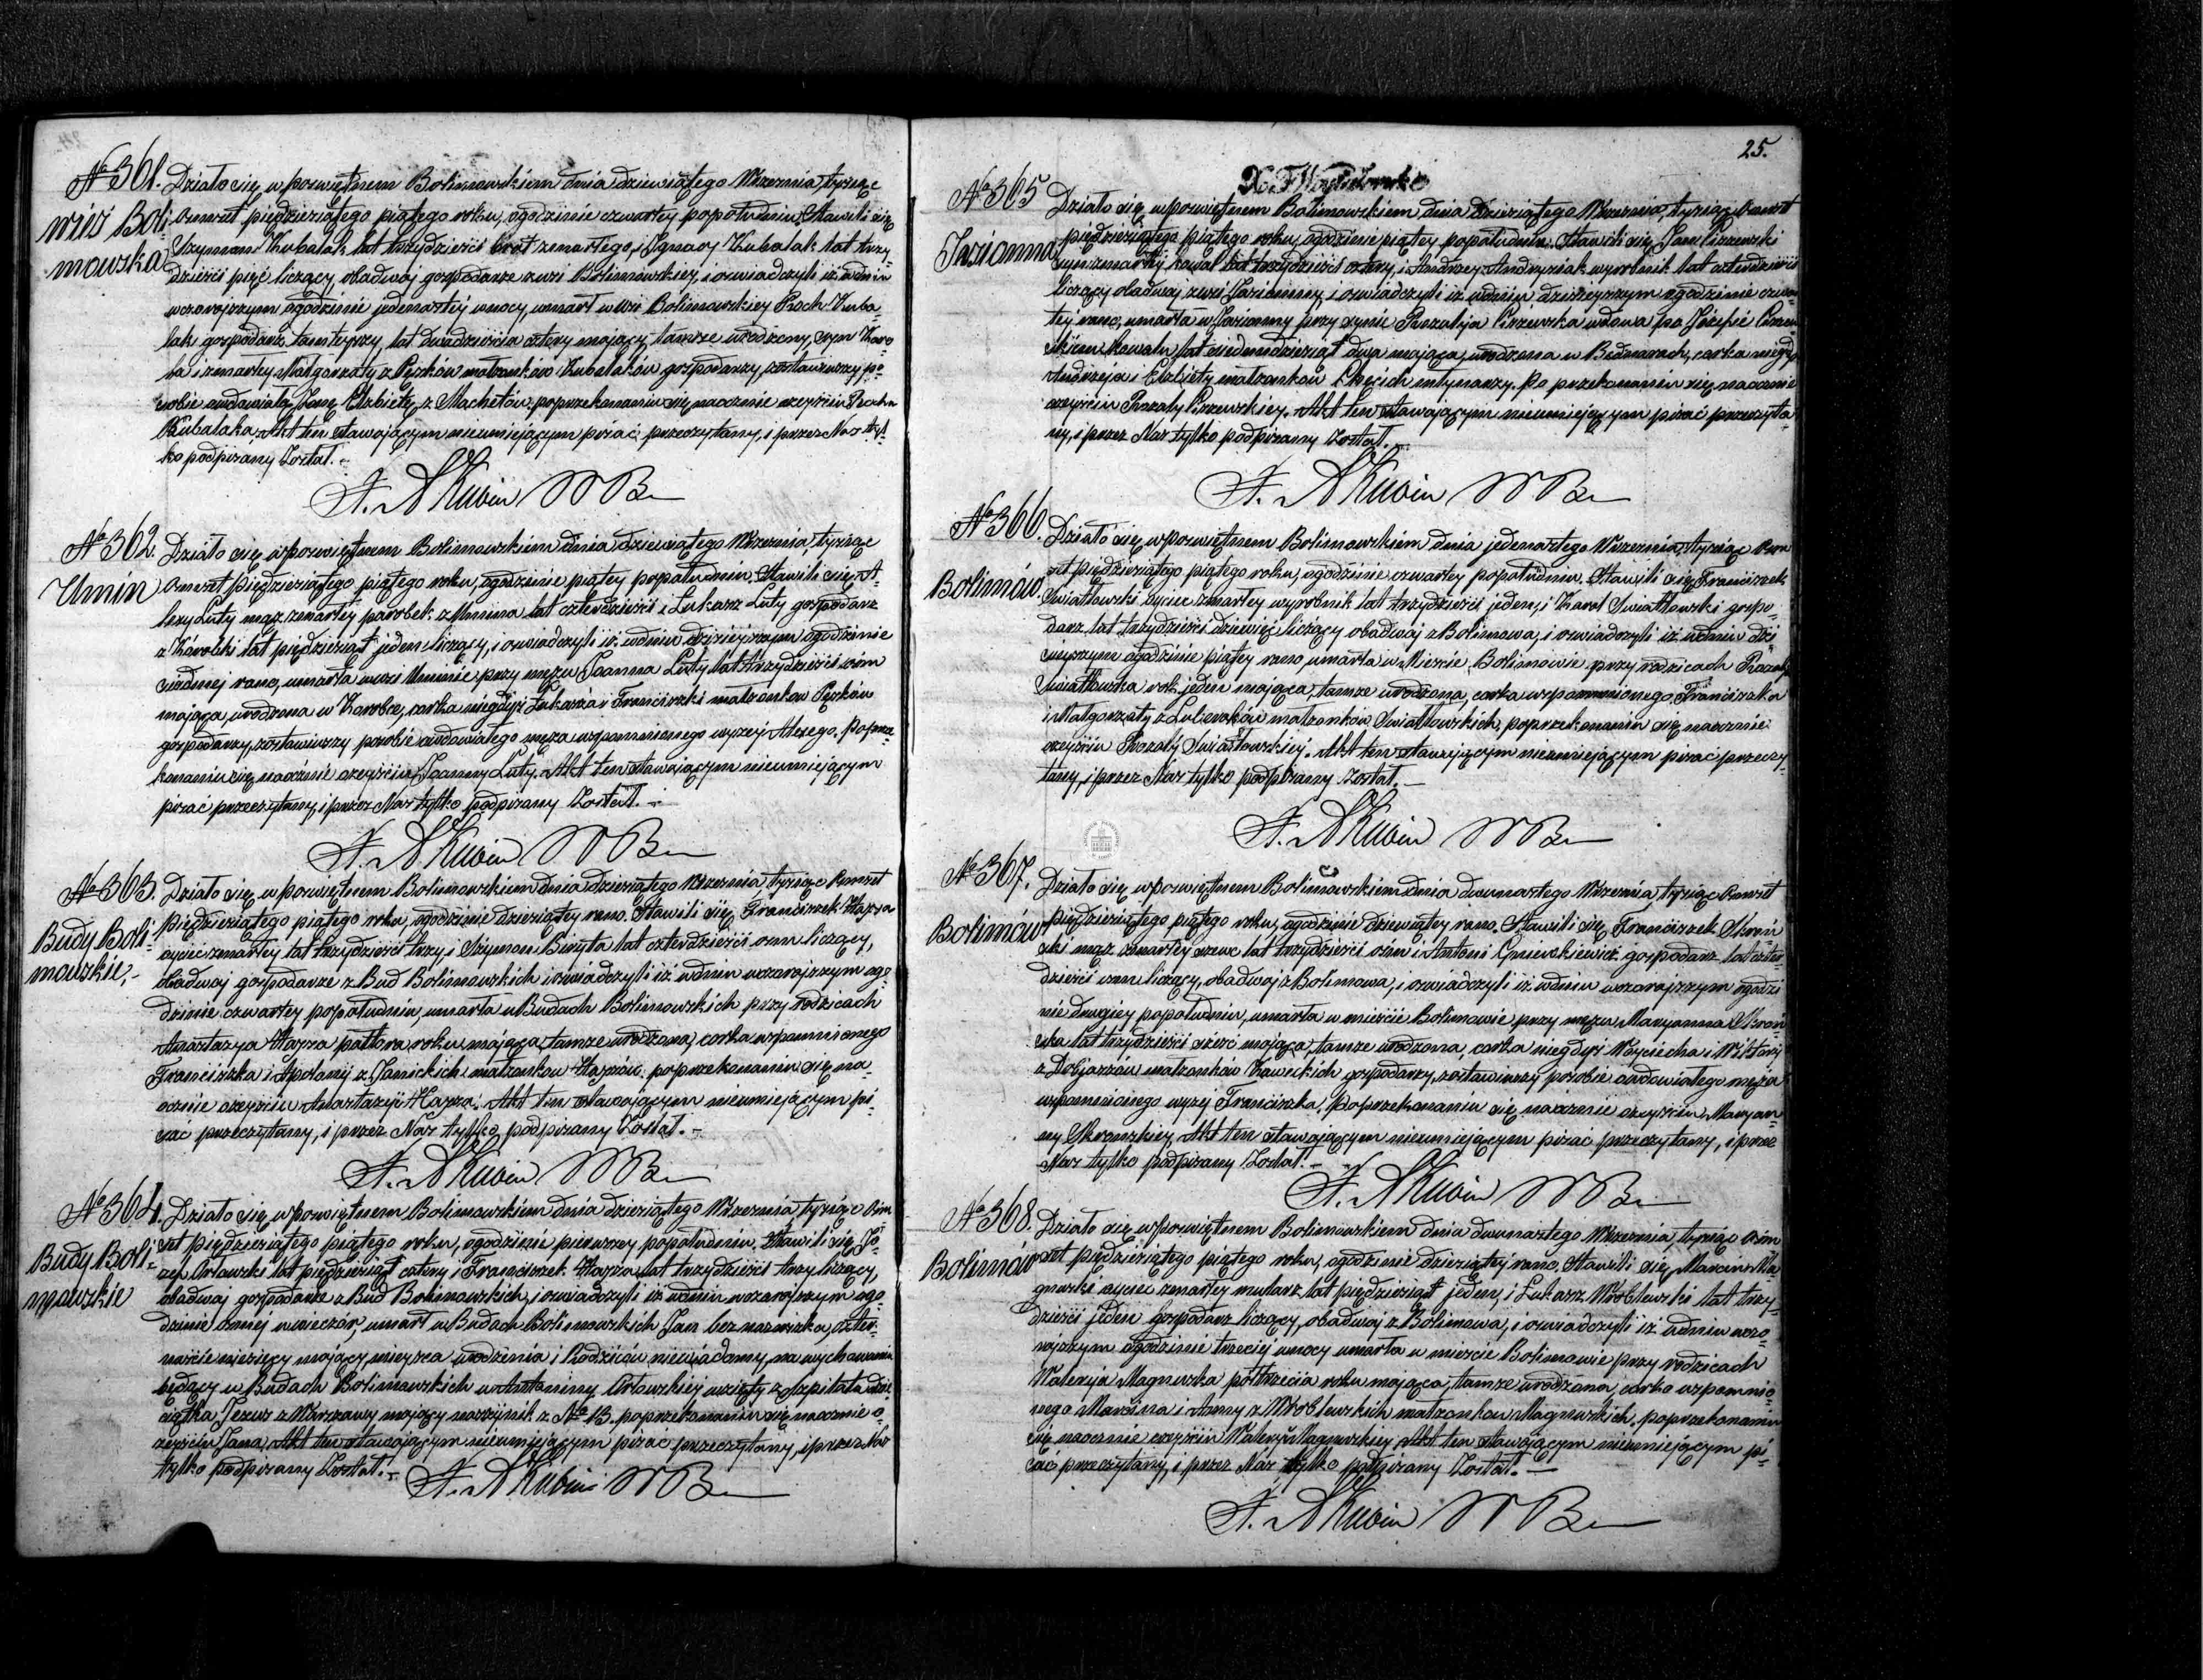 № 361.
wieś Boli=
mowska
Działo się w poswiętnem Bolimowskiem dnia dziewiątego Wrzesnia, tysiąc
osmset piędziesiątego piątego roku, ogodzinie czwartey popołudniu. Stawili się
Szymon Kubalak lat trzydzieści brat zmarłego, i Ignacy Kubalak lat trzy=
dzieści pięć liczący, obadwaj gospodarze z wsi Bolimowskiey, i oswiadczyli iż w dniu
wczorajszym ogodzinie jedenastéy wnocy, umarł w Wsi Bolimowskiey Roch Kuba=
lak gospodarz tamteyszy, lat dwadzieścia cztery mający, tamże urodzony, syn Karo
la i zmarłey Małgorzaty z Pęzków małzonków Kubalaków gospodarzy, zostawiwszy po=
sobie owdowiałą Zonę Elzbietę z Machetów. poprzekonaniu się naocznie ozeyściu Rocha
Kubalaka. Akt ten stawającym nieumiejącym pisać przeczytany, i przez Nas tyl=
ko podpisany Został. –
№ 362.
Umin
Działo się w poswiętnem Bolimowskiem dnia dziewiątego Wrzesnia, tysiąc
osmset piędziesiątego piątego roku, ogodzinie piątey popołudniu. Stawili się A=
lexy Luty mąz zmarłey parobek z Umina lat czterdzieści i Łukasz Luty gospodarz
z Karolki lat piędziesiąt jeden liczący, i oswiadczyli iż wdniu dzisieyszym ogodzinie
siódmej rano, umarła wwsi Uminie przy męzu Joanna Luty lat trzydzieści ośm
mająca, urodzona w Karolce, corka niegdyś Łukasza i Franciszki małzonkow Pęzków
gospodarzy, zostawiwszy posobie owdowiałego męza wspomnionego wyzej Alexego. Poprze=
konaniu się naocznie ozeyściu Joanny Luty. Akt ten stawającym nieumiejącym
pisać przeczytany, i przez Nas tylko podpisany Został. –
№ 363.
Budy Boli=
mowskie.
Działo się w poswiętnem Bolimowskiem dnia dziesiątego Wrzesnia, tysiąc osmset
piędziesiątego piątego roku, ogodzinie dziesiątey rano. Stawili się, Franciszek Hazza
oyciec zmarłey lat trzydzieści trzy i Szymon lat czterdzieści osm liczący,
obadwaj gospodarze z Bud Bolimowskich i oswiadczyli iż wdniu wczorajszym ogo=
dzinie czwartey popołudniu, umarła w Budach Bolimowskich przy rodzicach
Anastazya Hazza półtora roku mająca, tamze urodzona, corka wspomnionego
Franciszka i Apolonij z Janickich małzonkow Hazzów. poprzekonaniu się na=
ocznie ozeyściu Anastazyi Hazza. Akt ten stawającym nieumiejącym pi=
sać przeczytany, i przez Nas tylko podpisany Został. –
№ 364.
Budy Boli=
mowskie
Działo się w poswiętnem Bolimowskiem dnia dziesiątego Wrzesnia tysiąc osm
set piędziesiątego piątego roku, ogodzinie pierwszey popołudniu. Stawili się Jó=
zef Orłowski lat piędziesiąt cztery i Franciszek Hazza lat trzydzieści trzy liczący,
obadwaj gospodarze z Bud Bolimowskich, i oswiadczyli iż wdniu wczorajszym ogo=
dzinie ósmej wieczór, umarł w Budach Bolimowskich Jan bez nazwiska, czter=
naście miesięcy mający, mieysca urodzenia i Rodziców niewiadomy, na wychowaniu
będący w Budach Bolimowskich u Antoniny Orłowskiej wzięty z Szpitala dzie=
ciątka Jezus z Warszawy mający naszyjnik z № 13. poprzekonaniu się naocznie o=
zeyściu Jana, Akt ten stawającym nieumiejącym pisać przeczytany, i przez Nas
tylko podpisany Został. –
25.
№ 365
Jasionna
Działo się w poswiętnem Bolimowskiem dnia dziesiątego Wrzesnia, tysiąc osmset
piędziesiątego piątego roku, ogodzinie piątey popołudniu. Stawili się Jan Pizewski
syn zmarłéj kowal lat trzydzieści cztery, i Andrzey Andrysiak wyrobnik lat czterdzieści
liczący obadwaj z wsi Jasionny, i oswiadczyli iż wdniu dzisieyszym ogodzinie czwar=
tej rano, umarła w Jasionny przy synie Rozalija Pizewska wdowa po Józefie Pizew
skiem kowalu, lat siedmdziesiąt dwa mająca, urodzona w Bednarach, corka niegdy
Andrzeja i Elzbiety małzonków młynarzy. Po przekonaniu się naocznie
ozeyściu Rozaly Pizewskiey. Akt ten stawającym nieumiejącym pisać przeczyta=
ny, i przez Nas tylko podpisany Został. –
№ 366.
Bolimów.
Działo się w poswiętnem Bolimowskiem dnia jedenastego Wrzesnia, tysiąc osm
set piędziesiątego piątego roku, ogodzinie czwartey popołudniu. Stawili się Franciszek
Swiatłowski oyciec zmarłey wyrobnik lat trzydzieści jeden, i Karol Swiatłowski gospo=
darz lat trzydzieści dziewięć liczący obadwaj z Bolimowa, i oswiadczyli iż wdniu dzi
sieyszym ogodzinie piątey rano, umarła w Miescie Bolimowie przy rodzicach Rozalija
Swiatłowska rok jeden mająca, tamze urodzona, corka wspomnionego Franciszka
i Małgorzaty z małzonków Swiatłowskich, poprzekonaniu się naocznie
ozeyściu Rozaly Swiatłowskiej. Akt ten stawającym nieumiejącym pisać przeczy=
tany, i przez Nas tylko podpisany Został. –
№ 367.
Bolimów
Działo się w poswiętnem Bolimowskiem dnia dwunastego Wrzesnia tysiąc osmset
piędziesiątego piątego roku, ogodzinie dziewiątey rano. Stawili się Franciszek Skroń
ski mąz zmarłey szewc lat trzydzieści ośm i Antoni Gniewkiewicz gospodarz lat czter=
dzieści osm liczący, obadwaj z Bolimowa, i oswiadczyli iż wdniu wczorajszym ogodzi
nie drugiey popołudniu, umarła w mieście Bolimowie przy męzu Maryanna Skroń
ska lat trzydzieści sześć mająca, tamze urodzona, corka niegdyś Woyciecha i Wiktoryi
z małzonków Zawickich gospodarzy, zostawiwszy posobie owdowiałego męża
wspomnionego wyzej Franciszka. Poprzekonaniu się naocznie ozeyściu Maryan=
ny Skronskiey, Akt ten stawającym nieumiejącym pisać przeczytany, i przez
Nas tylko podpisany Został. –
№ 368.
Bolimów
Działo się w poswiętnem Bolimowskiem dnia dwunastego Wrzesnia, tysiąc osm
set piędziesiątego piątego roku, ogodzinie dziesiątej rano. Stawili się, Marcin Ma
gnuski oyciec zmarłey mularz lat piędziesiąt jeden, i Łukasz Wróblewski lat trzy=
dzieści jeden gospodarz liczący, obadwaj z Bolimowa, i oswiadczyli iż wdniu wczo=
rajszym ogodzinie trzeciéj wnocy umarła w miescie Bolimowie przy rodzicach
Walerija Magnuska półtrzecia roku mająca, tamze urodzona, corka wspomnio
nego Marcina i Anny z Wróblewskich małzonkow Magnuskich, poprzekonaniu
się naocznie ozeyściu Waleryi Magnuskiey Akt ten stawającym nieumiejącym pi=
sać przeczytany, i przez Nas tylko podpisany Został. –